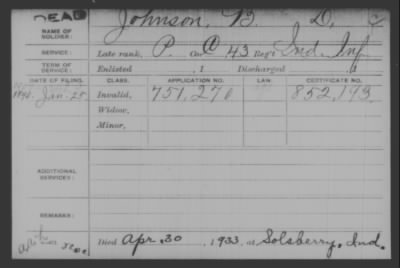 DEAD
NAME OF SOLDIER: Johnson, B. D.
SERVICE: Late rank, P. Co. C 43 Reg't Ind. Inf.
TERM OF SERVICE: Enlisted , 1 Discharged , 1
DATE OF FILING. CLASS. APPLICATION NO. LAW. CERTIFICATE NO.
Jan-25 Invalid, 751,270 852,193
Widow,
Minor,
ADDITIONAL SERVICES:
REMARKS:
Died Apr. 30 , 1933, at Solsberry, Ind.